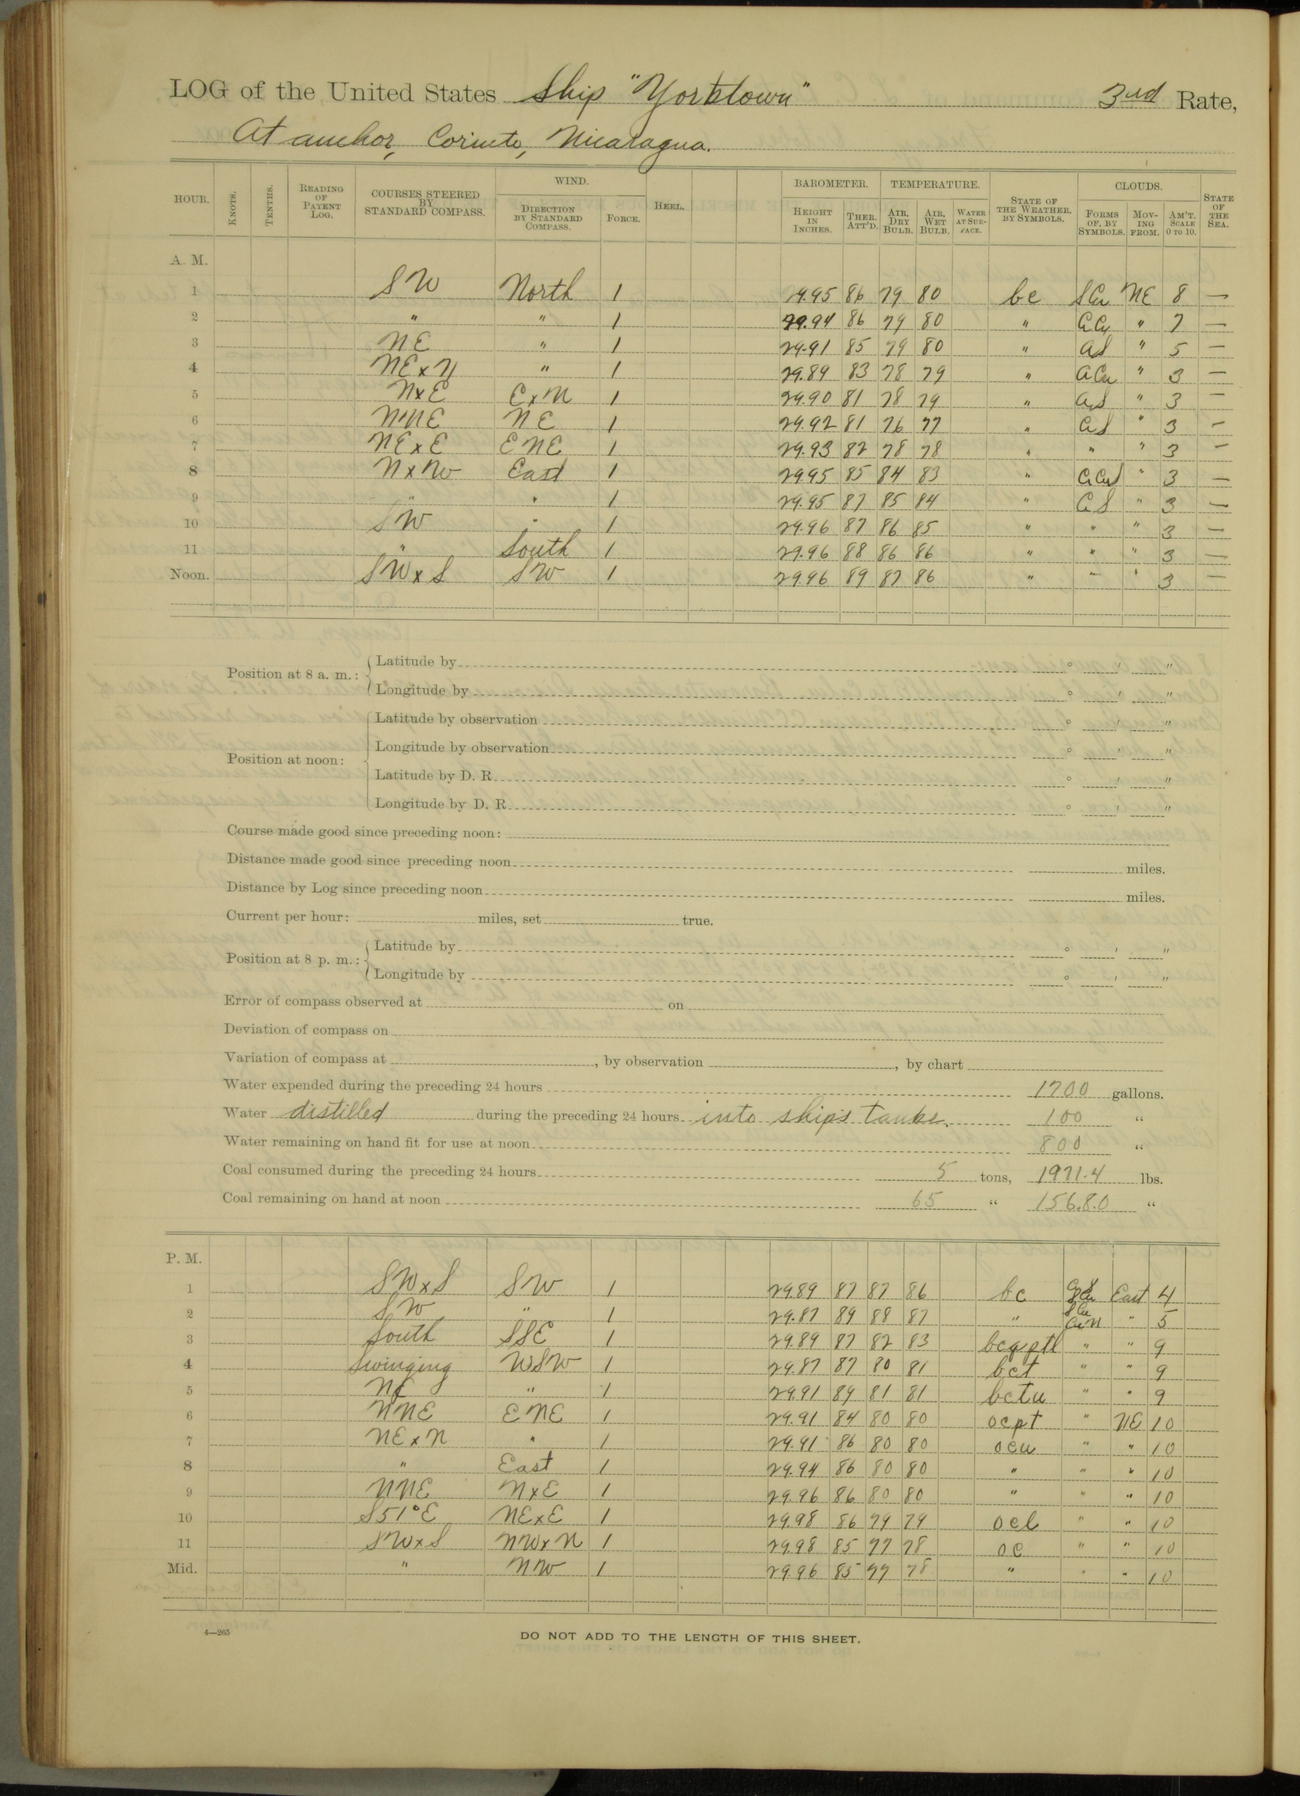 LOG of the United States Ship "Yorktown" 3rd Rate,
At anchor, Corinto, Nicaragua.
HOUR. KNOTS. TENTHS. READING OF PATENT LOG. COURSES STEERED BY STANDARD COMPASS. WIND. DIRECTION BY STANDARD COMPASS. FORCE. HEEL. BAROMETER. HEIGHT IN INCHES. THER. ATT'D. TEMPERATURE. AIR, DRY BULB. AIR, WET BULB. WATER AT SURFACE. STATE OF THE WEATHER, BY SYMBOLS. CLOUDS. FORMS OF, BY SYMBOLS. MOVING FROM. AM'T. SCALE 0 TO 10. STATE OF THE SEA.
A. M.
1 SW North 1 29.95 86 79 80 bc SCu NE 8 —
2 " " 1 29.94 86 79 80 " CCu " 7 —
3 NE " 1 29.91 85 79 80 " AS " 5 —
4 NExN " 1 29.89 83 78 79 " ACu " 3 —
5 NxE ExN 1 29.90 81 78 79 " AS " 3 —
6 NNE NE 1 29.92 81 76 77 " CS " 3 —
7 NExE ENE 1 29.93 82 78 78 " " " 3 —
8 NxW East 1 29.95 85 84 83 " " 3 —
9 " " 1 29.95 87 85 84 " CS " 3 —
10 SW " 1 29.96 87 86 85 " " " 3 —
11 " South 1 29.96 88 86 86 " " " 3 —
Noon. SWxS SW 1 29.96 89 87 86 " " " 3 —
Position at 8 a. m.: Latitude by ° ' "
Longitude by ° ' "
Position at noon: Latitude by observation ° ' "
Longitude by observation ° ' "
Latitude by D. R. ° ' "
Longitude by D. R. ° ' "
Course made good since preceding noon:
Distance made good since preceding noon miles.
Distance by Log since preceding noon miles.
Current per hour: miles, set true.
Position at 8 p. m.: Latitude by ° ' "
Longitude by ° ' "
Error of compass observed at on
Deviation of compass on
Variation of compass at , by observation , by chart
Water expended during the preceding 24 hours 1700 gallons.
Water distilled during the preceding 24 hours into ship's tanks. 100 "
Water remaining on hand fit for use at noon 800 "
Coal consumed during the preceding 24 hours 5 tons, 1971.4 lbs.
Coal remaining on hand at noon 65 " 156.8.0 "
P. M.
1 SWxS SW 1 29.89 87 87 86 bc East 4
2 SW " 1 29.87 89 88 87 " " 5
3 South SSE 1 29.89 87 82 83 bcqptl " " 9
4 Swinging WSW 1 29.87 87 80 81 bct " " 9
5 NE " 1 29.91 89 81 81 bctu " " 9
6 NNE ENE 1 29.91 84 80 80 ocpt " NE 10
7 NExN " 1 29.91 86 80 80 ocu " " 10
8 " East 1 29.94 86 80 80 " " " 10
9 NNE NxE 1 29.96 86 80 80 " " " 10
10 S51°E NExE 1 29.98 86 79 79 ocl " " 10
11 SWxS NWxN 1 29.98 85 77 78 oc " " 10
Mid. " NW 1 29.96 85 77 78 " " " 10
4—265
DO NOT ADD TO THE LENGTH OF THIS SHEET.